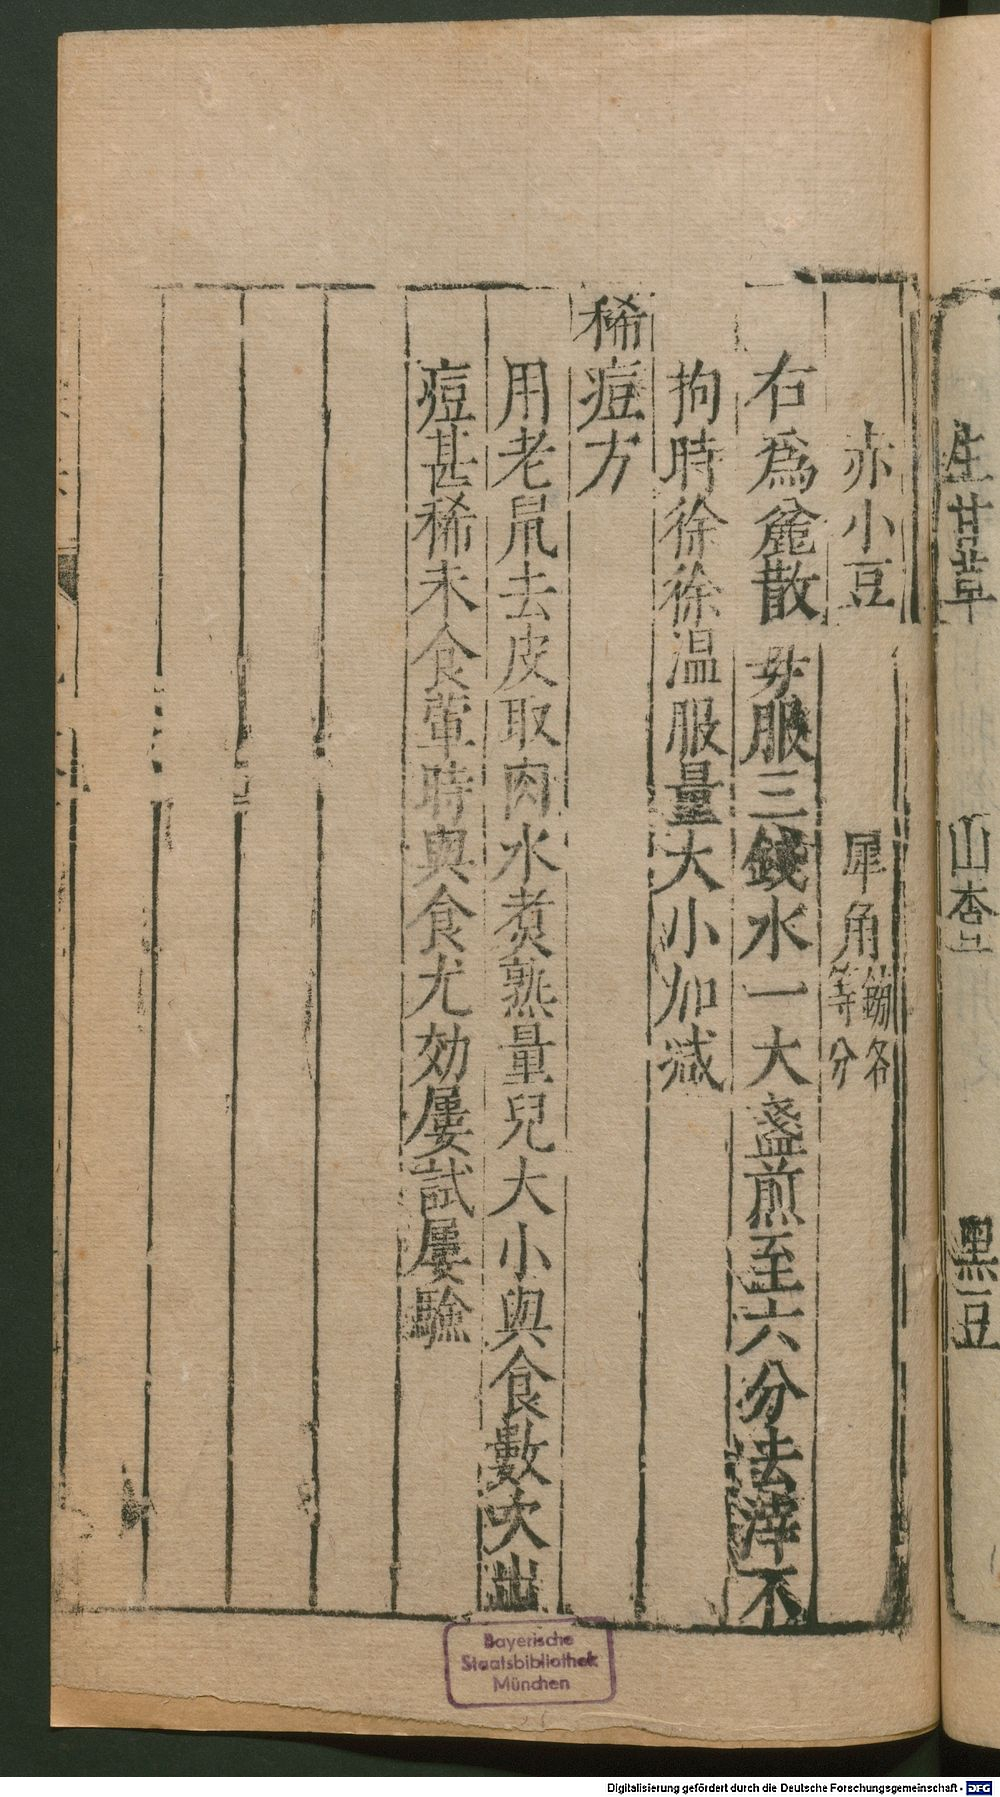 生甘草 山杏 黑豆
赤小豆 犀角鎊各等分
右爲麄散每服三錢水一大盞煎至六分去滓不
拘時徐徐温服量大小加減
稀痘方
用老鼠去皮取肉水煑熟量兒大小與食數次出
痘甚稀未食葷時與食尤効屢試屢驗
Bayerische
Staatsbibliothek
München
Digitalisierung gefördert durch die Deutsche Forschungsgemeinschaft - DFG